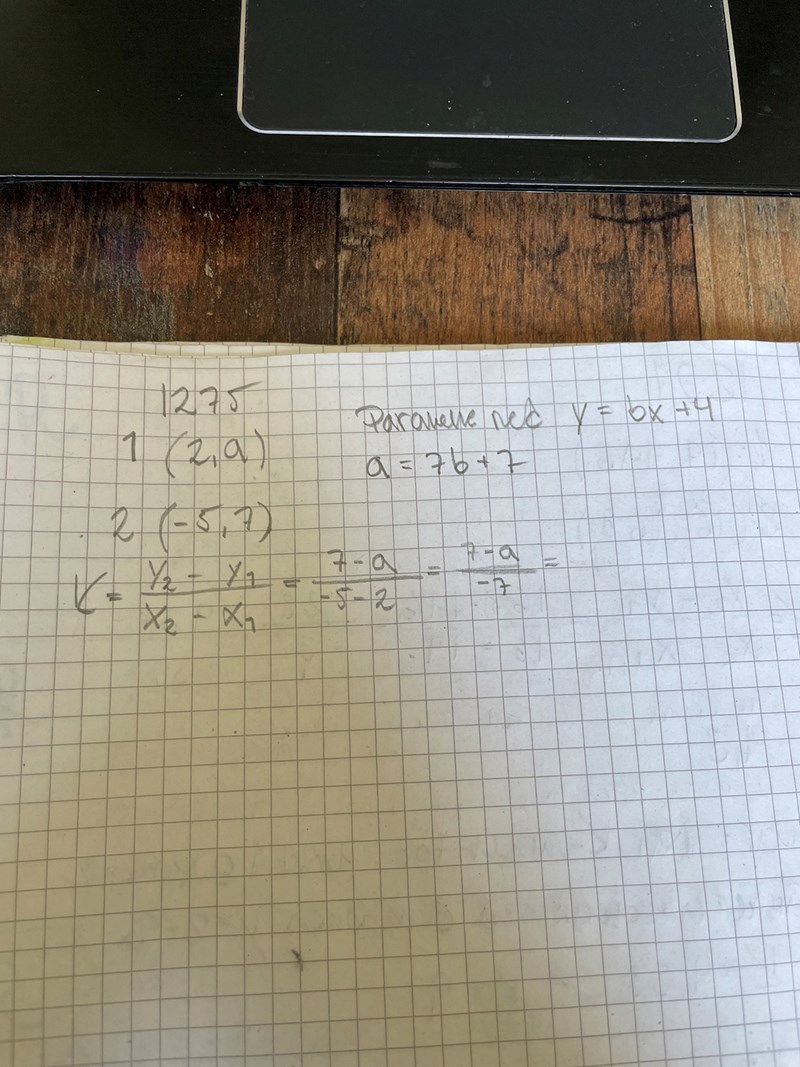 1275
1 (2,a)
Parallelle med y = bx + 4
a = 7b + 7
2 (-5,7)
K = \frac{y_2 - y_1}{x_2 - x_1} = \frac{7-a}{-5-2} = \frac{7-a}{-7} =